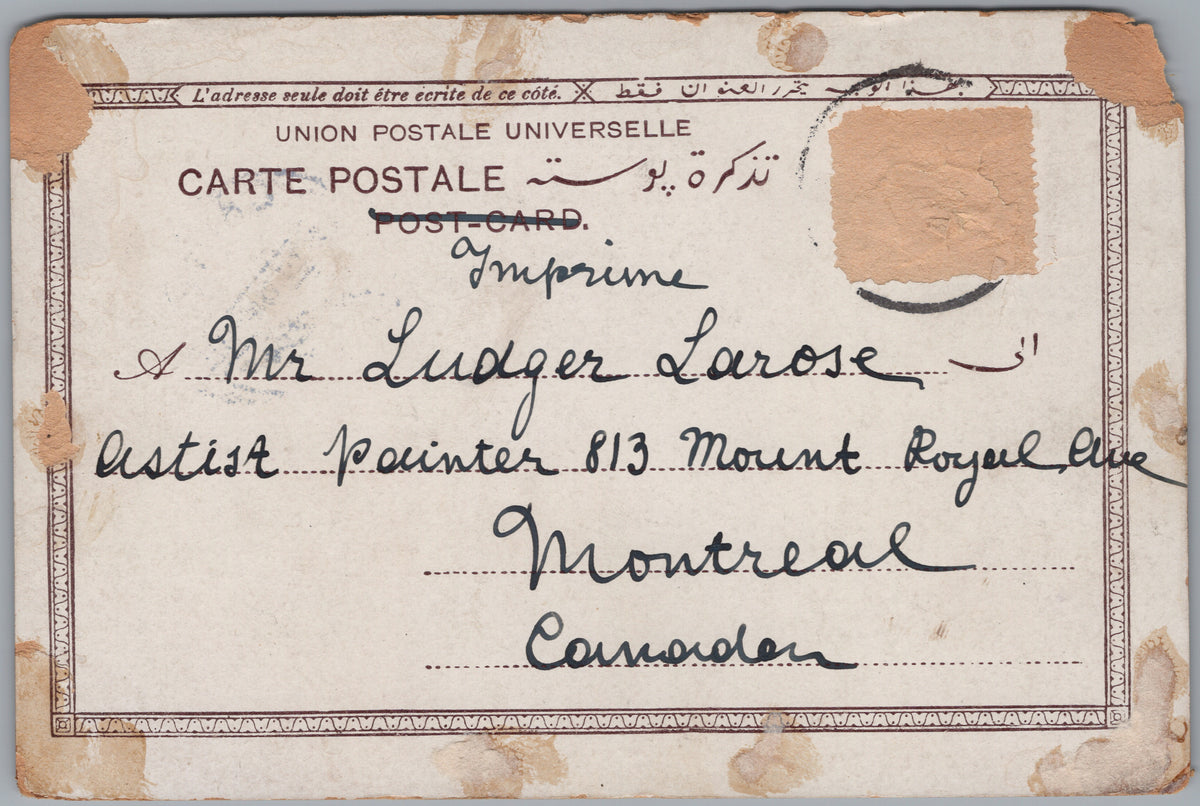 L'adresse seule doit être écrite de ce côté. بهذا الوجه يحرر العنوان فقط
UNION POSTALE UNIVERSELLE
CARTE POSTALE تذكرة پوسته
POST-CARD.
Imprime
A Mr Ludger Larose الى
Artist painter 813 Mount Royal Ave
Montreal
Canada